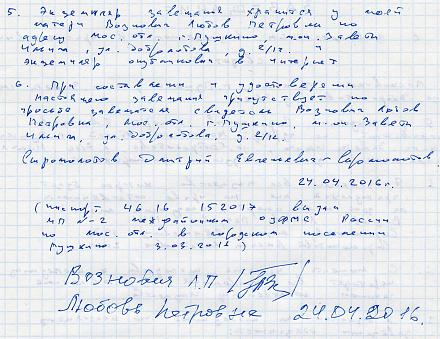 5. Экземпляр завещания хранится у моей
матери Вознович Любовь Петровны по
адресу мос. отл. г. Пушкино, м-он. Завети
Ильича, ул. Добролюбова, д. 2/12. и
экземпляр опубликован в интернет
6. При составлении и удостоверении
настоящего завещания присутствует по
просьбе завещателя свидетель Вознович Любовь
Петровна, мос. отл. г. Пушкино, м-он. Завети
Ильича, ул. Добролюбова. д. 2/12.
Сыромолотов Дмитрий Евгеньевич -
24.04.2016г.
(паспорт 46 16 152017 выдан
ТП №-2 межрайонного ОУФМС России
по мос. отл. в городском поселении
Пушкино 3.03.2017)
Л.П
Любовь Петровна 24.04.2016.